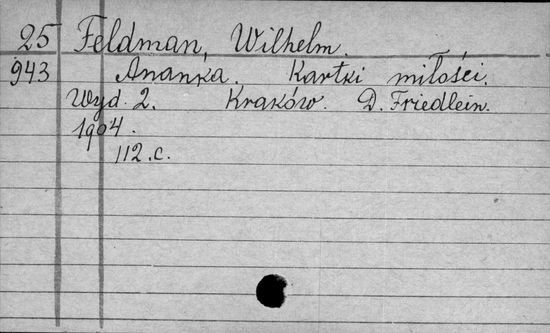 25 Feldman, Wilhelm.
943 Ananka. Kartki miłości.
Wyd. 2. Kraków. D. Friedlein.
1904.
112.c.